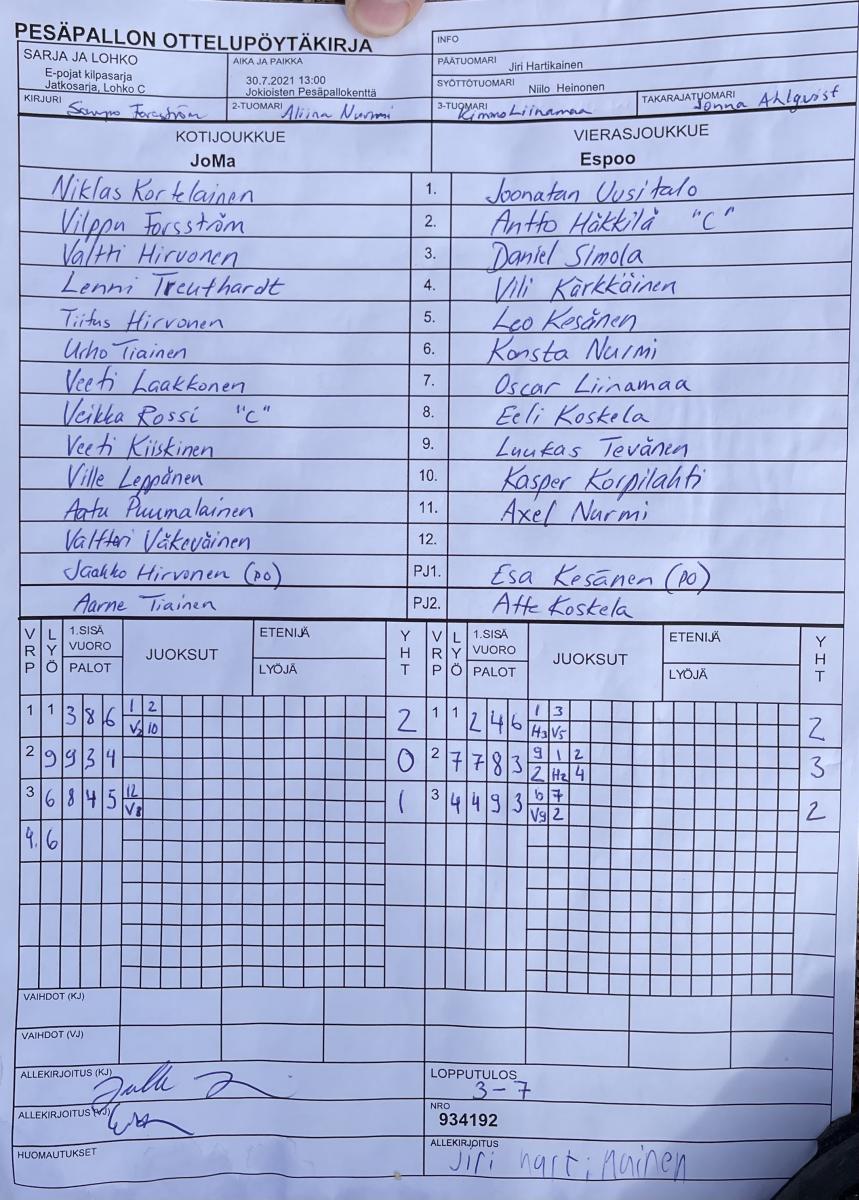 PESÄPALLON OTTELUPÖYTÄKIRJA
INFO
SARJA JA LOHKO
E-pojat kilpasarja
Jatkosarja, Lohko C
AIKA JA PAIKKA
30.7.2021 13:00
Jokioisten Pesäpallokenttä
PÄÄTUOMARI Jiri Hartikainen
SYÖTTÖTUOMARI Niilo Heinonen
KIRJURI Sampo Forsström
2-TUOMARI Aliina Nurmi
3-TUOMARI Kimmo Liinamaa
TAKARAJATUOMARI Jonna Ahlqvist
KOTIJOUKKUE VIERASJOUKKUE
JoMa Espoo
Niklas Kortelainen 1. Joonatan Uusitalo
Vilppu Forsström 2. Antto Häkkilä "C"
Valtti Hirvonen 3. Daniel Simola
Lenni Treuthardt 4. Vili Kärkkäinen
Tiitus Hirvonen 5. Leo Kesänen
Urho Tiainen 6. Konsta Nurmi
Veeti Laakkonen 7. Oscar Liinamaa
Veikka Rossi "C" 8. Eeli Koskela
Veeti Kiiskinen 9. Luukas Tevänen
Ville Leppänen 10. Kasper Korpilahti
Aatu Puumalainen 11. Axel Nurmi
Valtteri Väkeväinen 12.
Jaakko Hirvonen (PO) PJ1. Esa Kesänen (PO)
Aarne Tiainen PJ2. Atte Koskela
VRP LYÖ 1.SISÄ VUORO PALOT JUOKSUT ETENIJÄ LYÖJÄ YHT VRP LYÖ 1.SISÄ VUORO PALOT JUOKSUT ETENIJÄ LYÖJÄ YHT
1 1 3 8 6 1 2 2 1 1 2 4 6 1 3 2
V2 10 H3 V5
2 9 9 3 4 0 2 7 7 8 3 9 1 2 3
2 H2 4
3 6 8 4 5 12 1 3 4 4 9 3 10 7 2
V8 V9 2
4. 6
VAIHDOT (KJ)
VAIHDOT (VJ)
ALLEKIRJOITUS (KJ)
LOPPUTULOS
3-7
ALLEKIRJOITUS (VJ)
NRO
934192
HUOMAUTUKSET
ALLEKIRJOITUS
Jiri Hartikainen